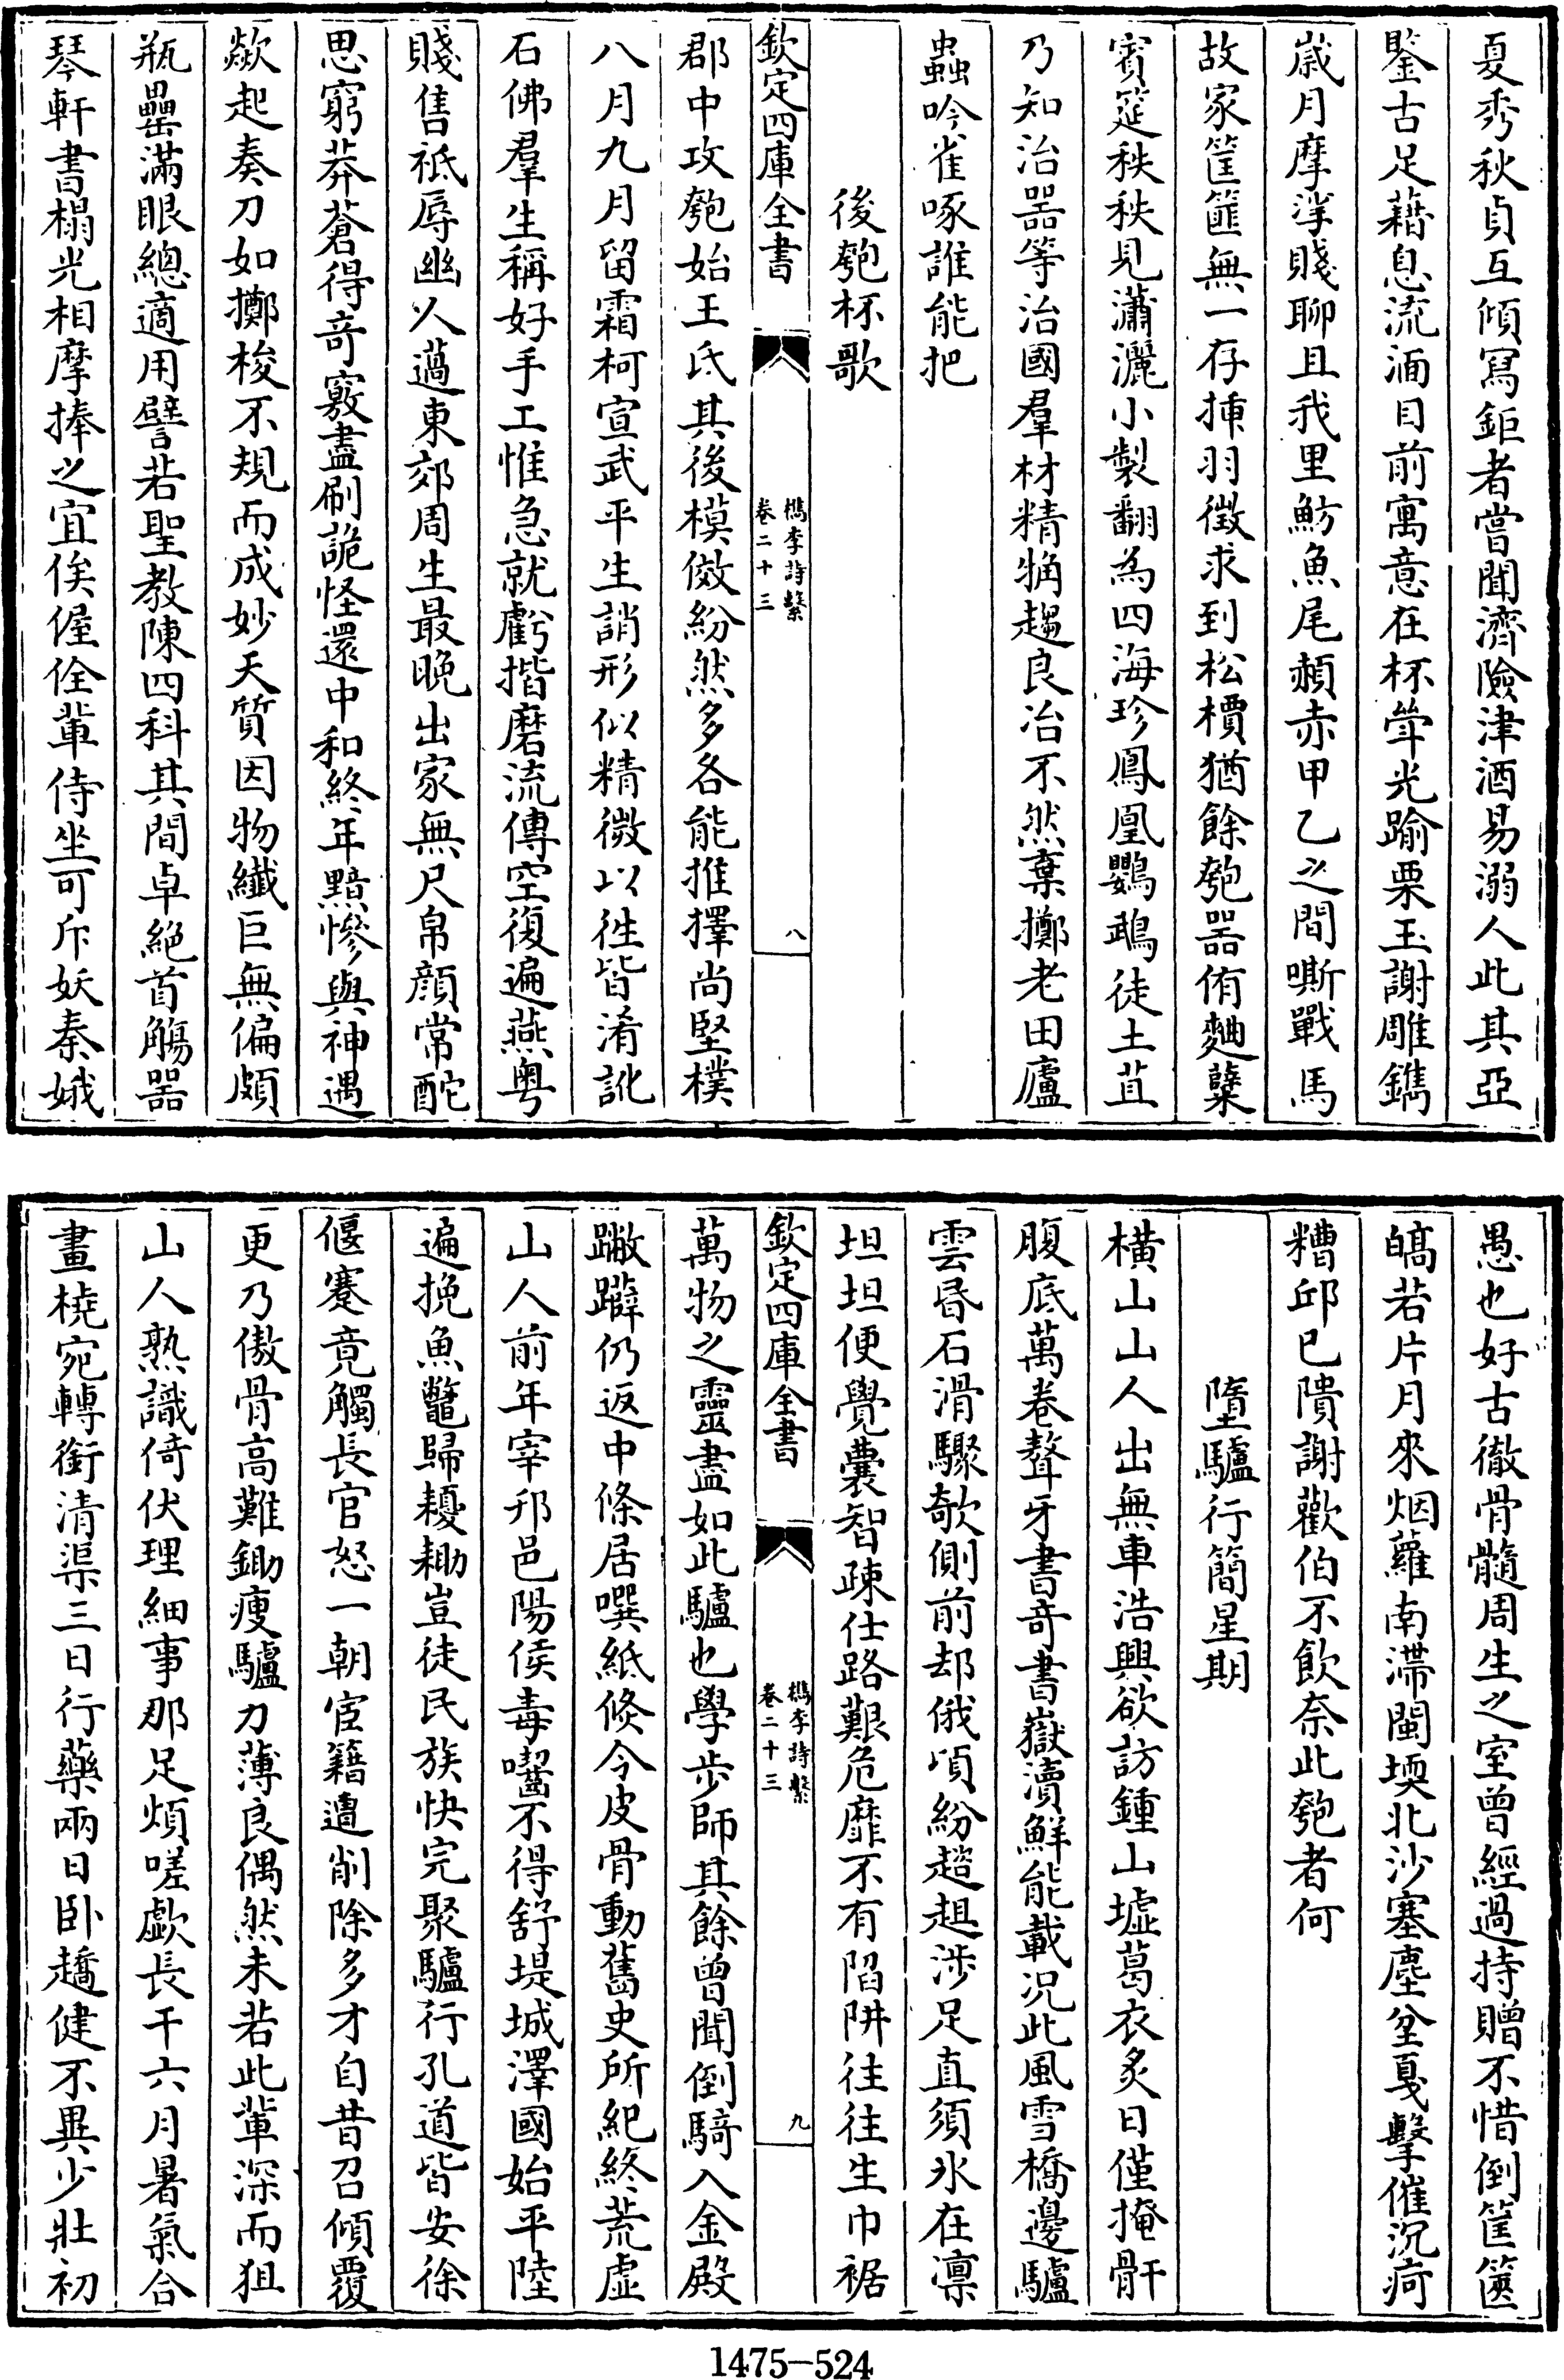 夏秀秋貞互傾寫鉅者嘗聞濟險津酒易溺人此其亞
鑒古足藉息流湎目前寓意在杯斝光踰栗玉謝雕鐫
嵗月摩挲賤聊且我里魴魚尾赬赤甲乙之間嘶戰馬
故家筐篚無一存揷羽徴求到松檟猶餘匏器侑麯糵
賓筵秩秩見瀟灑小製翻為四海珍鳳凰鸚鵡徒土苴
乃知治器等治國羣材精觕趨良冶不然棄擲老田廬
蟲吟雀啄誰能把
後匏杯歌
欽定四庫全書
檇李詩繫
卷二十三
八
郡中攻匏始王氏其後模倣紛然多各能推擇尚堅樸
八月九月留霜柯宣武平生誚形似精微以徃皆淆訛
石佛羣生稱好手工惟急就虧揩磨流傳空復遍燕粤
賤售祗辱幽人薖東郊周生最晚出家無尺帛顔常酡
思窮莽蒼得竒竅盡刷詭怪還中和終年黯慘與神遇
歘起奏刀如擲梭不規而成妙天質因物纎巨無偏頗
瓶罍滿眼總適用譬若聖教陳四科其間卓絶首觴器
琴軒書榻光相摩捧之宜俟偓佺軰侍坐可斥妖秦娥
愚也好古徹骨髓周生之室曾經過持贈不惜倒筐篋
皜若片月來烟蘿南滯閩堧北沙塞塵坌戛擊催沉疴
糟邱已隤謝歡伯不飲奈此匏者何
墮驢行簡星期
橫山山人出無車浩興欲訪鍾山墟葛衣炙日僅掩骭
腹底萬卷聱牙書竒書嶽瀆鮮能載况此風雪橋邊驢
雲昬石滑驟欹側前却俄頃紛趦趄涉足直須氷在凛
坦坦便覺囊智疎仕路艱危靡不有陷阱往往生巾裾
欽定四庫全書
檇李詩繫
卷二十三
九
萬物之靈盡如此驢也學步師其餘曾聞倒騎入金殿
蹩躠仍返中條居噀紙倐令皮骨動舊史所紀終荒虚
山人前年宰邗邑陽侯毒嚙不得舒堤城澤國始平陸
遍挽魚鼈歸耰耡豈徒民族快完聚驢行孔道皆安徐
偃蹇竟觸長官怒一朝宦籍遭削除多才自昔召傾覆
更乃傲骨高難鋤瘦驢力薄良偶然未若此軰深而狙
山人熟識倚伏理細事那足煩嗟歔長干六月暑氣合
畫橈宛轉銜清渠三日行藥兩日卧趫健不異少壯初
1475—524